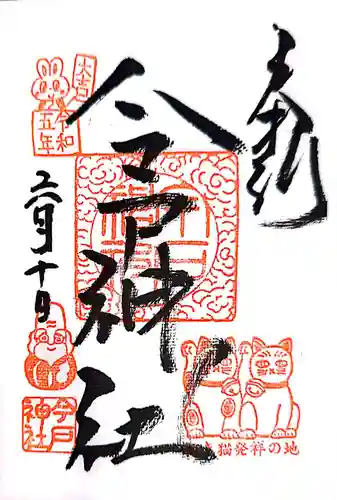 奉拝
今戸神社
大吉
令和
五年
十日
今戸
神社
猫発祥の地